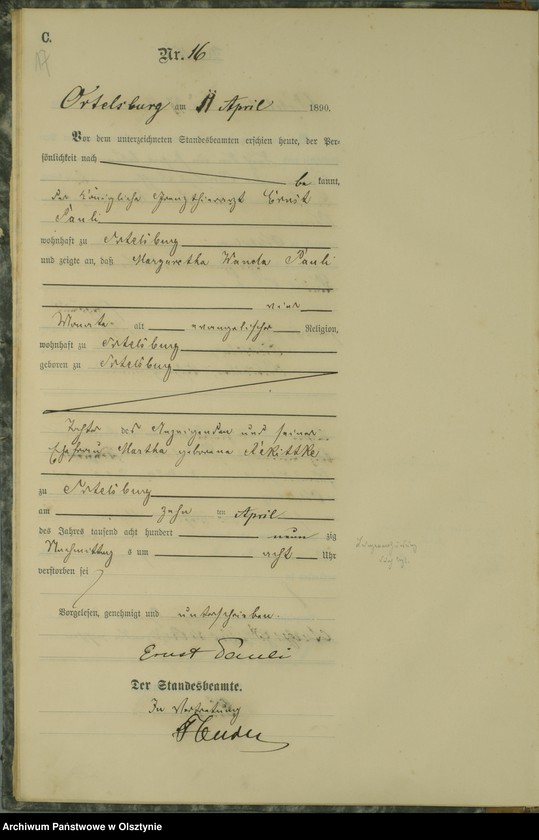 C.
Nr. 16
Ortelsburg am 11 April 1890.
Vor dem unterzeichneten Standesbeamten erschien heute, der Per-
sönlichkeit nach
be kannt,
der Königliche Grenzthierarzt Ernst
Pauli
wohnhaft zu Ortelsburg
und zeigte an, daß Margaretha Wanda Pauli
vier
Monate alt evangelischer Religion,
wohnhaft zu Ortelsburg
geboren zu Ortelsburg
Tochter des Anzeigenden und seiner
Ehefrau Martha geborene Rekittke
zu Ortelsburg
am zehn ten April
des Jahres tausend acht hundert neun zig
Nachmittag s um acht Uhr
verstorben sei
Vorgelesen, genehmigt und unterschrieben.
Ernst Pauli
Der Standesbeamte.
In Vertretung
Archiwum Państwowe w Olsztynie